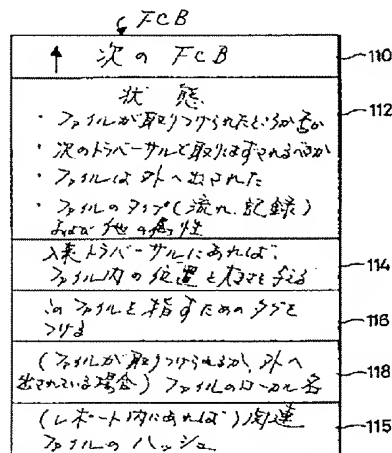 FCB
次の FCB
110
状態
112
・ファイルが取りつけられたどうか否か
・次のトラバーサルで取りはずされるべきか
・ファイルは外へ出された
・ファイルのタイプ(流れ、記録)
および他の属性
入来トラバーサルにあれば、
ファイル内の位置と長さを与える
114
このファイルを指すためのタグを
つける
116
(ファイルが取りつけられるか、外へ
出されている場合)ファイルのローカル名
118
(レポート内にあれば)関連
ファイルのハッシュ
115